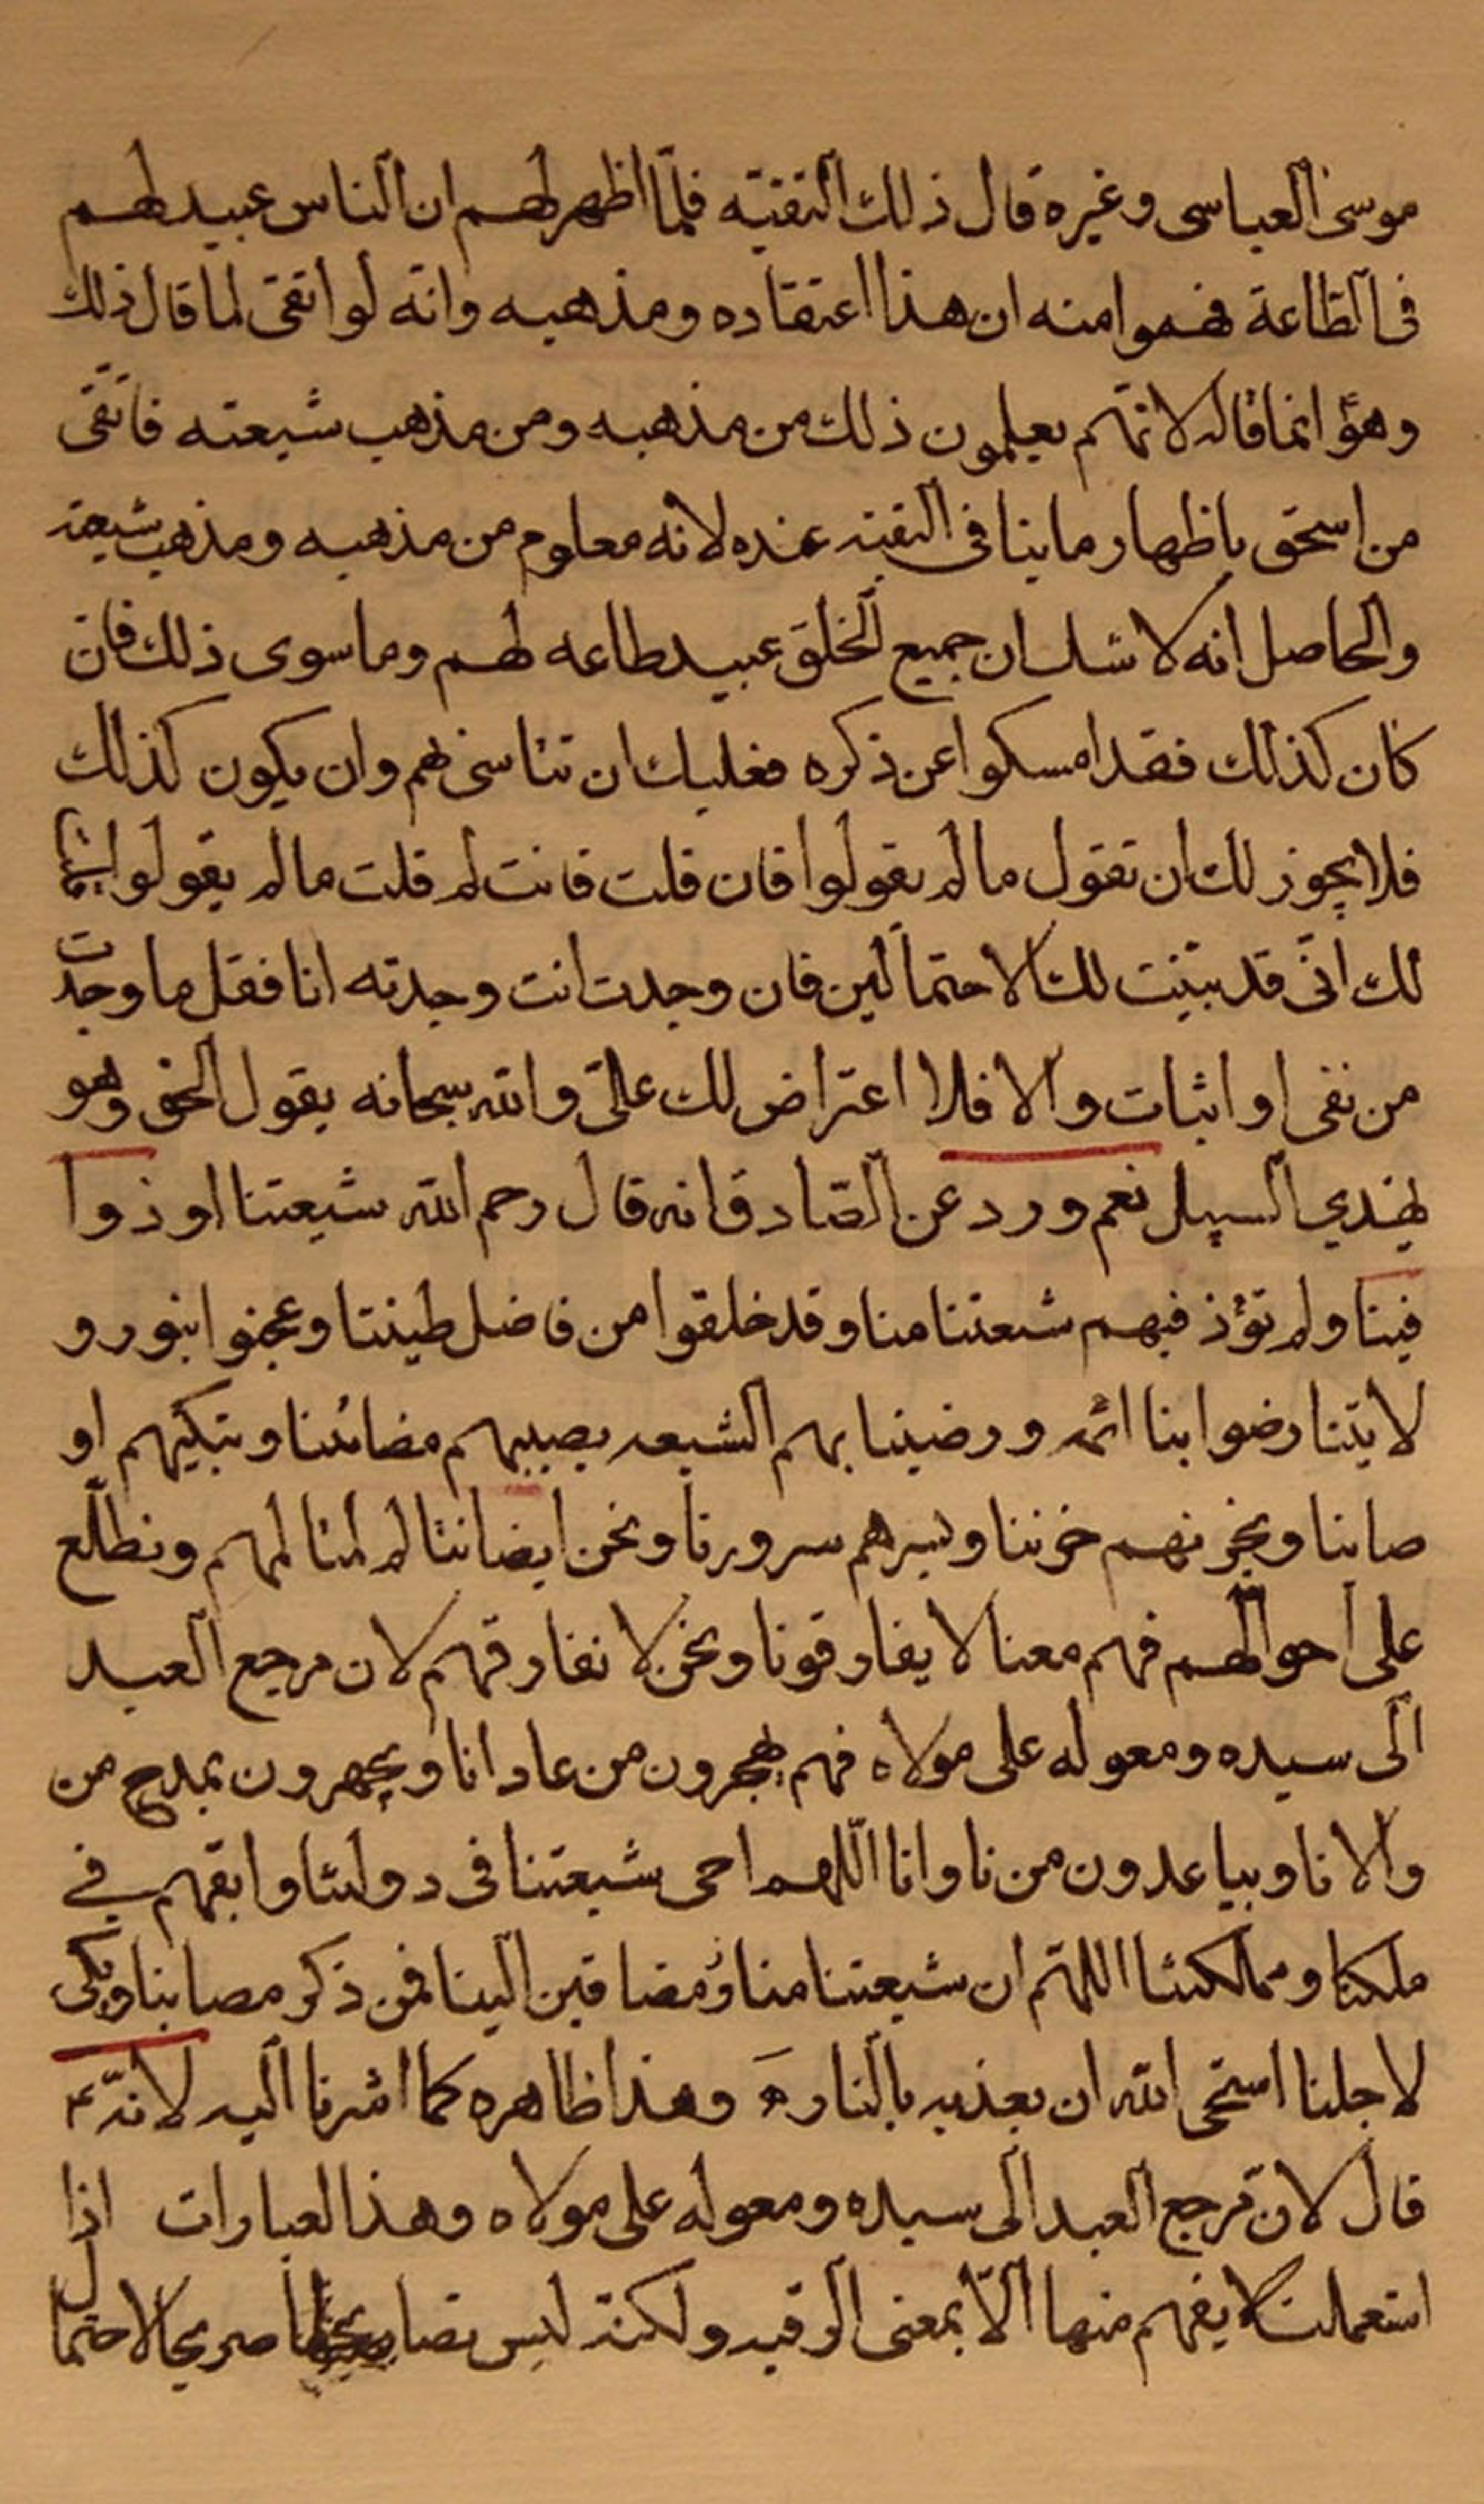 موسى العباسى وغيره قال ذلك التقيّه فلمّا اظهر لهم ان الناس عبيد لهم
فى الطاعة فهموا منه ان هذا اعتقاده ومذهبه وانه لو اتقى لما قال ذلك
وهوؑ انما قاله لانهم يعلمون ذلك من مذهبه ومن مذهب شيعته فاتقى
من اسحق باظهار ما ينافى التقيه عنده لانه معلوم من مذهبه ومذهب شيعته
والحاصل انه لا شك ان جميع الخلق عبيد طاعه لهم وما سوى ذلك فان
كان كذلك فقد امسكوا عن ذكره فعليك ان تتاسى بهم وان يكون كذلك
فلا يجوز لك ان تقول ما لم يقولوا فان قلت فانت لم قلت ما لم يقولوا
لك انى قد بيّنت لك الاحتمالين فان وجدت انت وجدته انا فقل ما وجدت
من نفى او اثبات والا فلا اعتراض لك علىّ والله سبحانه يقول الحق وهو
يهدي السبيل نعم ورد عن الصادق انه قال رحم الله شيعتنا اوذوا
فينا ولم نؤذ فيهم شيعتنا منا وقد خلقوا من فاضل طينتنا وعجنوا بنور و
لايتنا رضوا بنا ائمه ورضينا بهم الشيعه يصيبهم مصائبنا وتبكيهم او
صابنا ويحزنهم حزننا ويسرهم سرورنا ونحن ايضا نتالم لتالمهم ونطلع
على احوالهم فهم معنا لا يفارقونا ونحن لا نفارقهم لان مرجع العبد
الى سيده ومعوله على مولاه فهم يهجرون من عادانا ويجهرون بمدح من
والانا ويباعدون من ناوانا اللهم احى شيعتنا فى دولتنا وابقهم فے
ملكنا ومملكتنا اللهم ان شيعتنا منا ومضافين الينا فمن ذكر مصابنا وبكى
لاجلنا استحى الله ان يعذبه بالنار ه وهذا ظاهره كما اشرنا اليه لانهؑ
قال لان مرجع العبد الى سيده ومعوله على مولاه وهذا العبارات اذا
استعملت لا يفهم منها الّا بمعنى الرقيه ولكنه ليس نصا صريحا لاحتمال